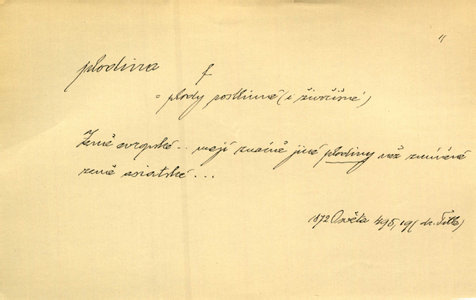 4
plodina f
= plody rostlinné (i živočišné)
Země evropské .. mají značně jiné plodiny než zmíněné
země asiatské ...
1872 Osvěta 495, (dr. Tille)